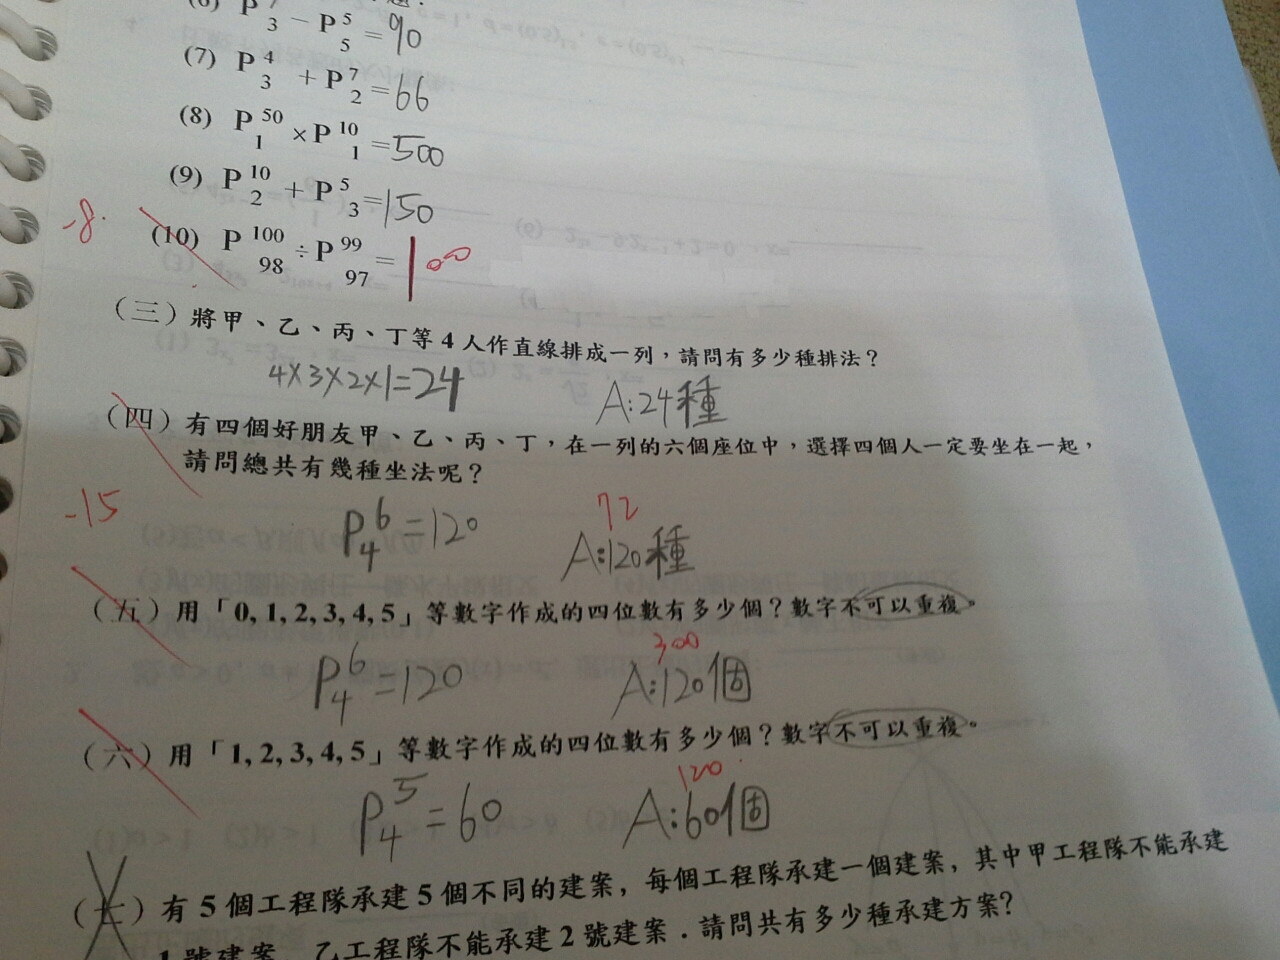 (6) P 7 3 − P 5 5 = 90
(7) P 4 3 + P 7 2 = 66
(8) P 50 1 × P 10 1 = 500
(9) P 10 2 + P 5 3 = 150
-8
(10) P 100 98 ÷ P 99 97 = 100
(三) 將甲、乙、丙、丁等 4 人作直線排成一列，請問有多少種排法？
4×3×2×1=24 A:24種
(四) 有四個好朋友甲、乙、丙、丁，在一列的六個座位中，選擇四個人一定要坐在一起，
請問總共有幾種坐法呢？
-15
72
P 6 4 = 120 A:120種
(五) 用「0, 1, 2, 3, 4, 5」等數字作成的四位數有多少個？數字不可以重複。
300
P 6 4 = 120 A:120個
(六) 用「1, 2, 3, 4, 5」等數字作成的四位數有多少個？數字不可以重複。
120
P 5 4 = 60 A:60個
(七) 有 5 個工程隊承建 5 個不同的建案，每個工程隊承建一個建案，其中甲工程隊不能承建
1 號建案，乙工程隊不能承建 2 號建案．請問共有多少種承建方案?